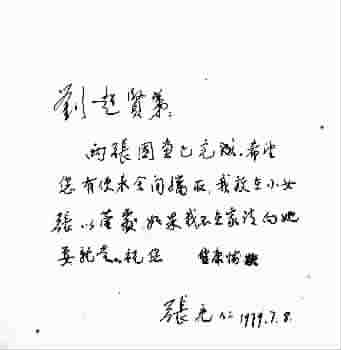 劉超賢弟：
两張图盖已完成，希望
您有便来舍间摘取，我放在小女
張以莲處，如果我不在家請向她
要就是。祝您 健康愉快
張充仁 1979.7.8.